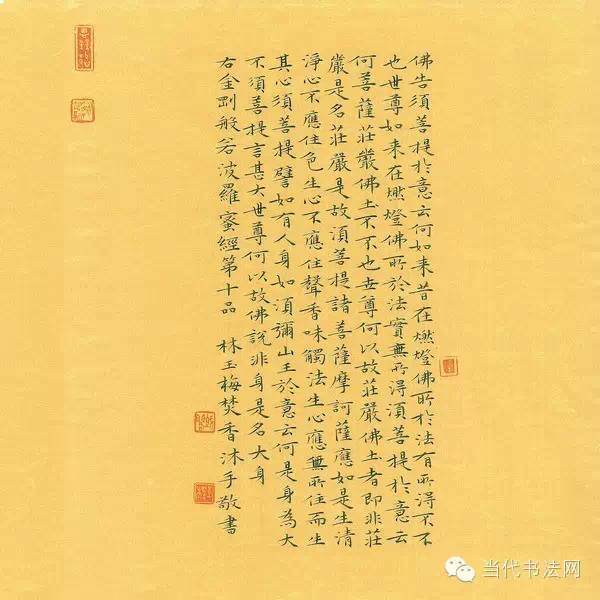 佛告須菩提於意云何如来昔在燃燈佛所於法有所得不不
也世尊如来在燃燈佛所於法實無所得須菩提於意云
何菩薩莊嚴佛土不不也世尊何以故莊嚴佛土者即非莊
嚴是名莊嚴是故須菩提諸菩薩摩訶薩應如是生清
淨心不應住色生心不應住聲香味觸法生心應無所住而生
其心須菩提譬如有人身如須彌山王於意云何是身為大
不須菩提言甚大世尊何以故佛說非身是名大身
右金剛般若波羅蜜經第十品 林玉梅焚香沐手敬書
当代书法网